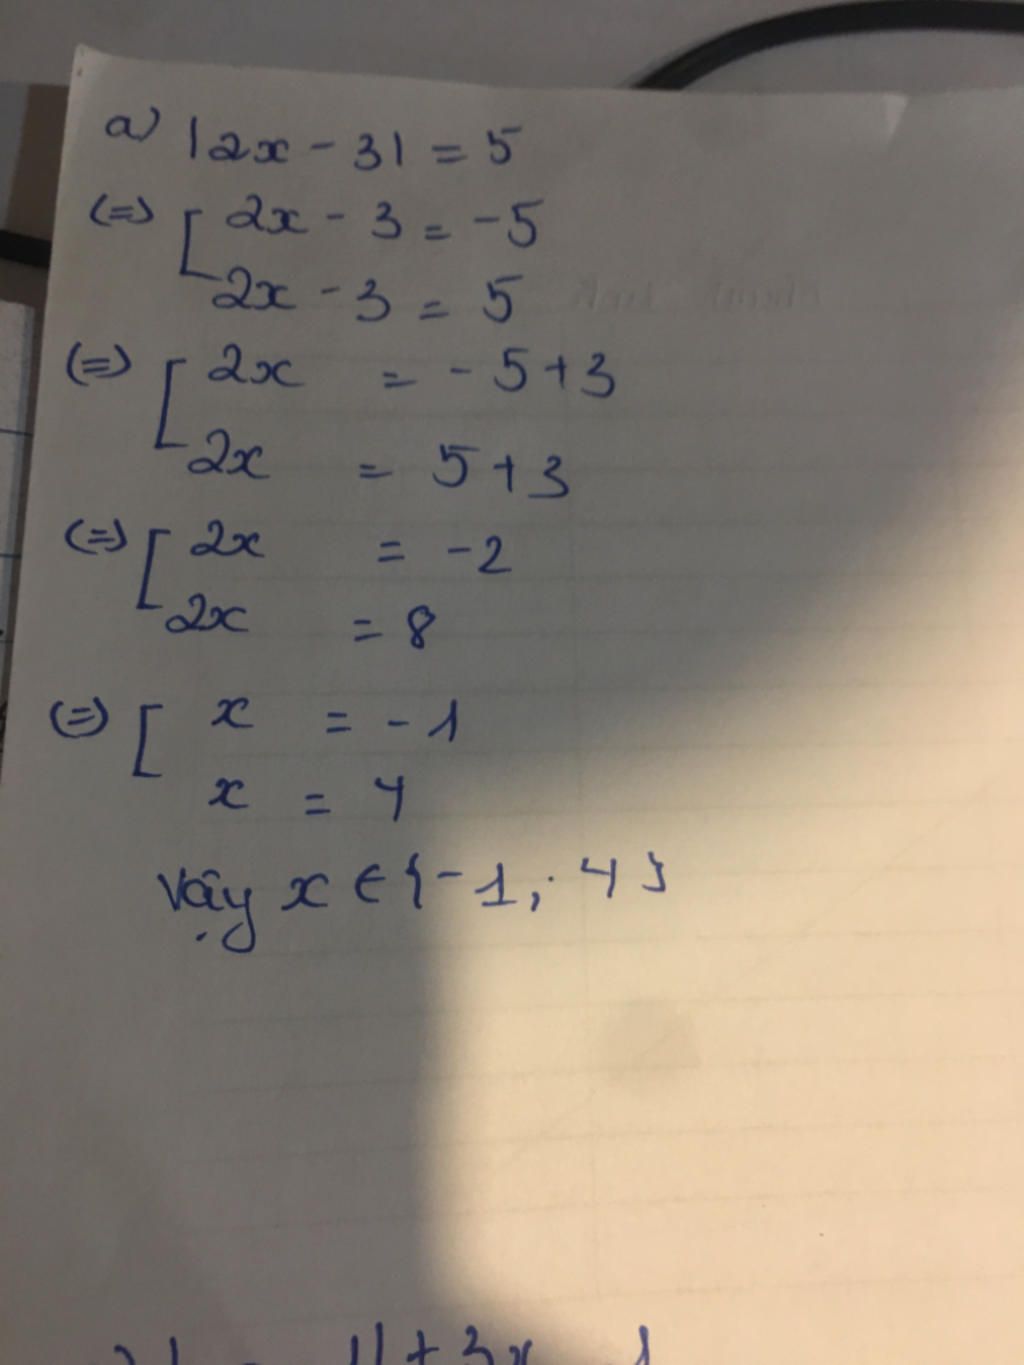 a) |2x - 3| = 5
(=) [ 2x - 3 = -5
2x - 3 = 5
(=) [ 2x = - 5 + 3
2x = 5 + 3
(=) [ 2x = - 2
2x = 8
(=) [ x = - 1
x = 4
Vậy x ∈ {- 1; 4}